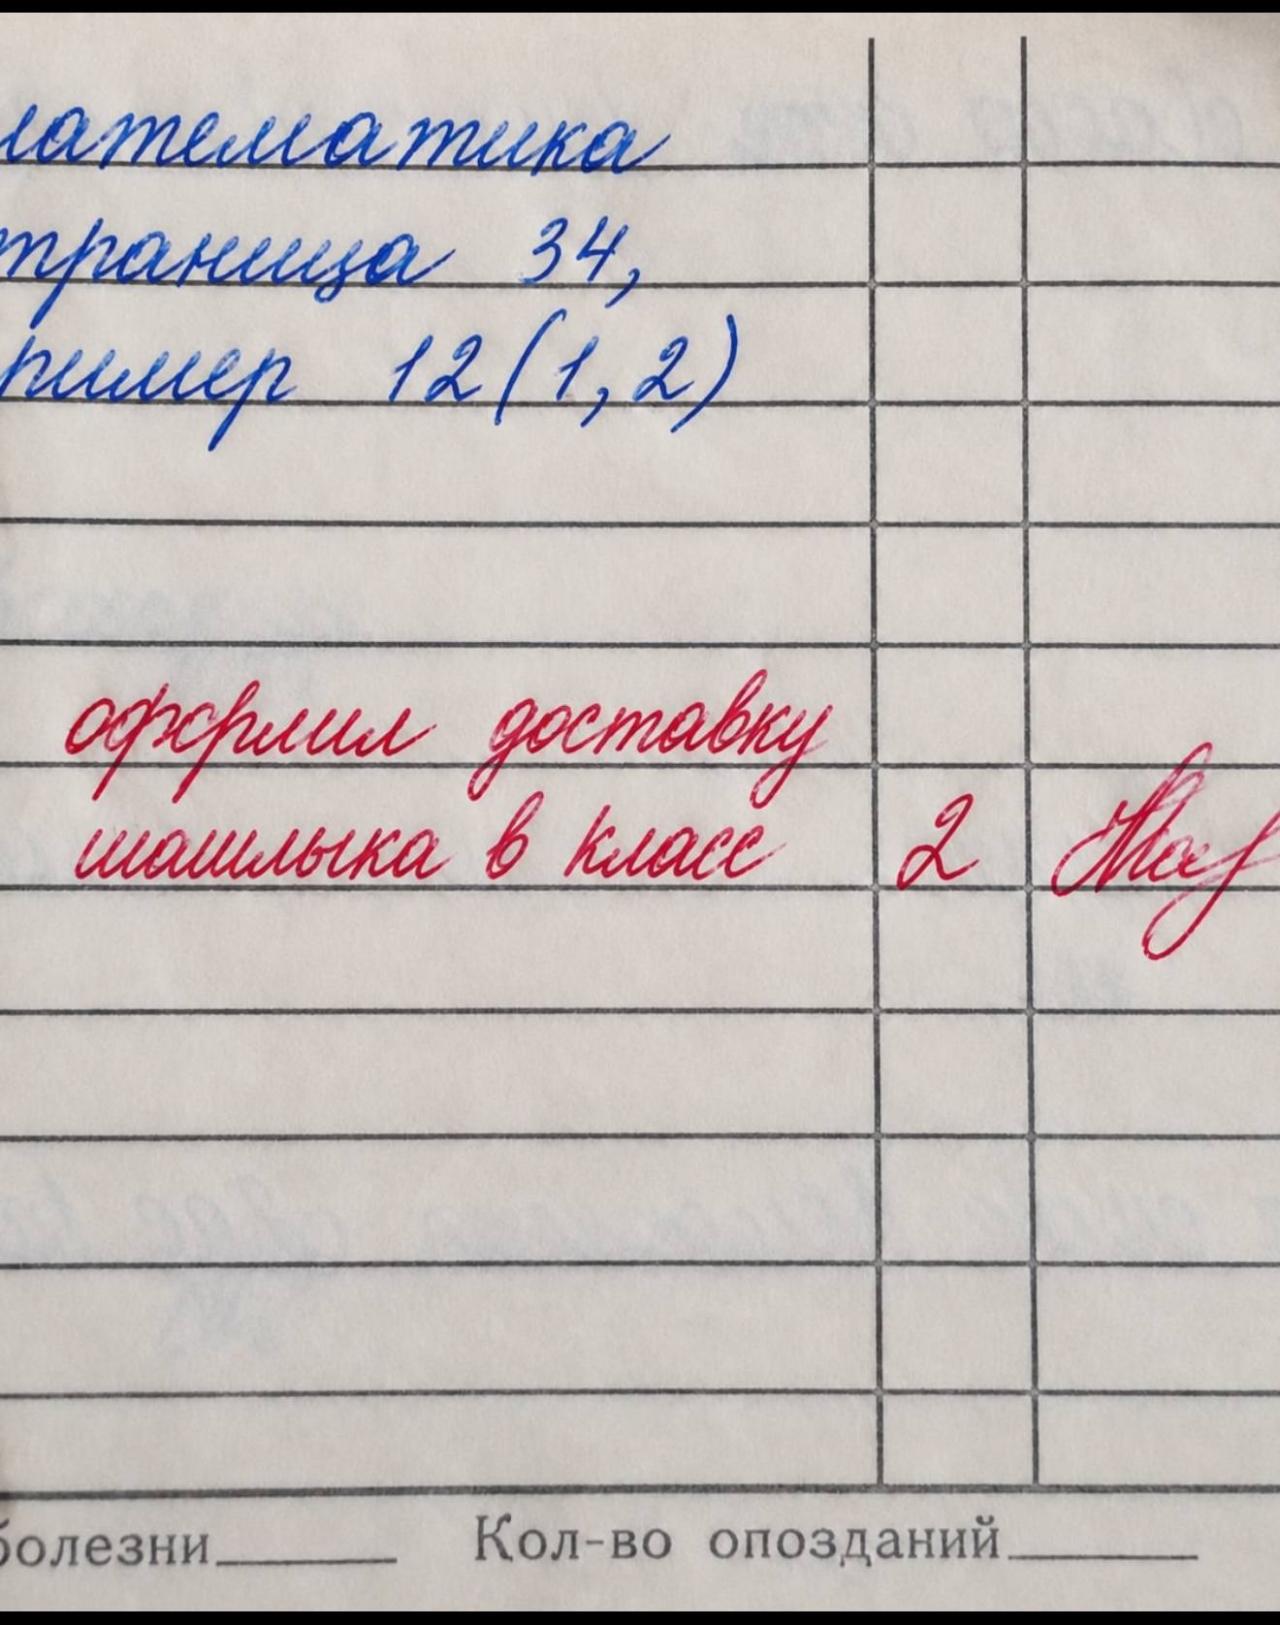 латематика
траница 34,
ример 12(1,2)
оформил доставку
шашлыка в класс 2
болезни Кол-во опозданий